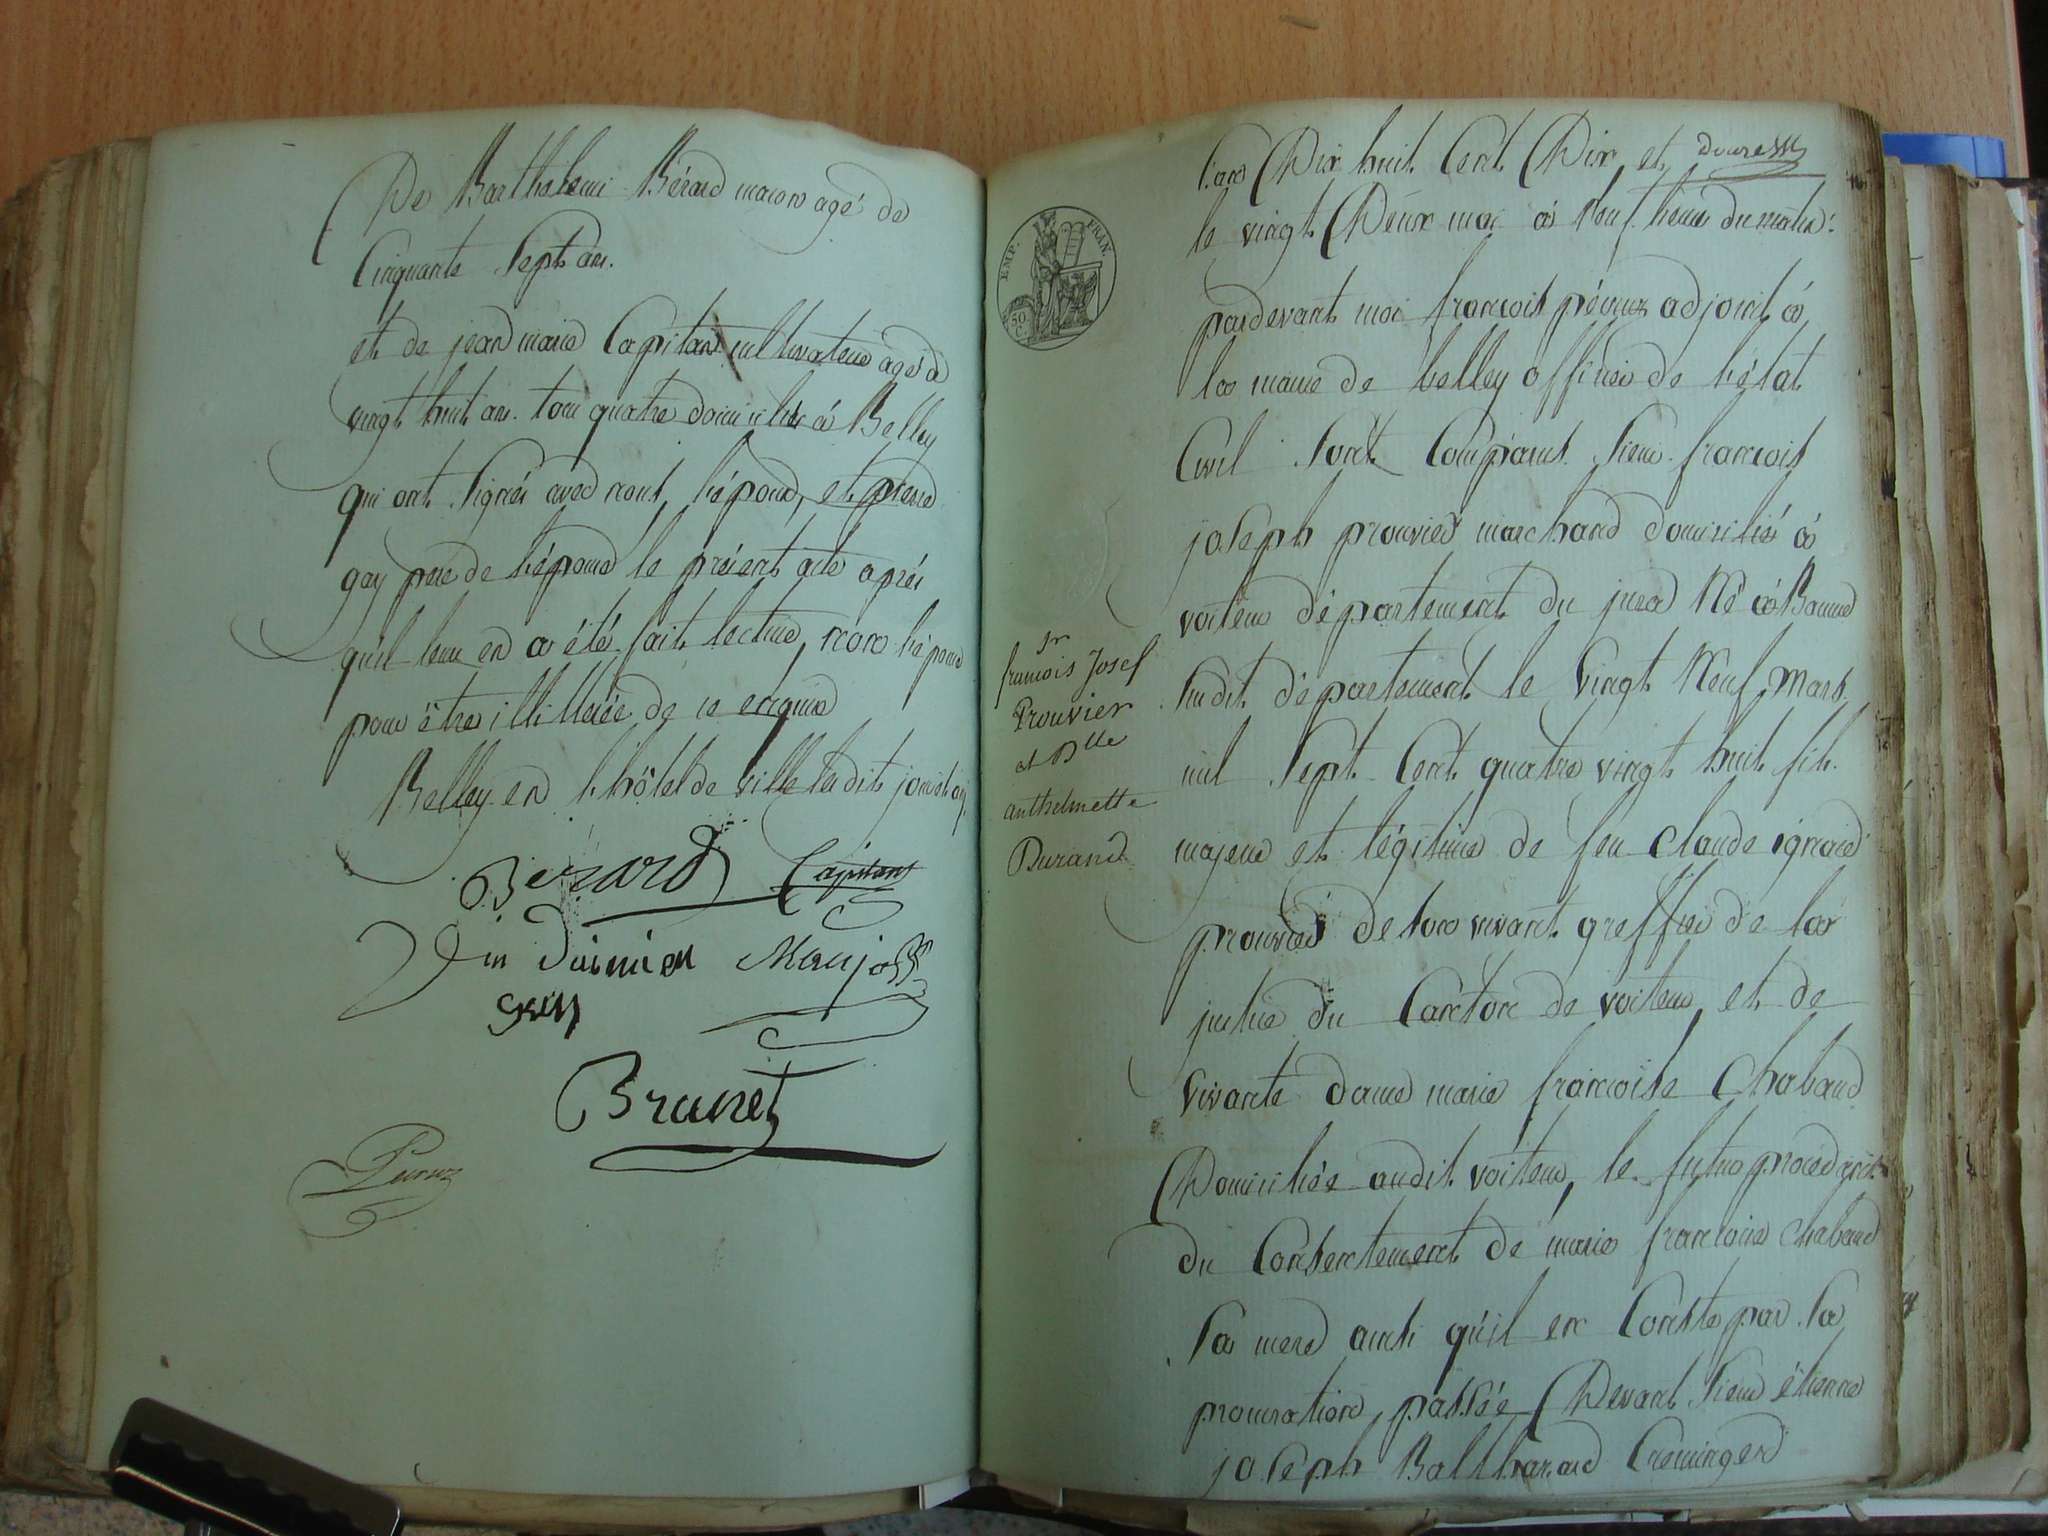 De Barthelemi Bérard macon agé de
Cinquante Sept ans.
et de jean marie Capitan cultivateur agé de
vingt huit ans. tous quatre domiciliés à Belley
qui ont Signés avec nous, l'époux, et pierre
gay pere de l'épouse le présent acte après
qu'il leur en a été fait lecture, non l'épouse
pour être illitterée de ce enquise
Belley en l'hôtel de ville ledit jour et an,
Berard Capitan
Damien Maujot
Gay
Brunet
Peronz
l'an Dix huit Cent Dix et douze
le vingt Deux mai à Neuf heures du matin:
pardevant moi françois péronz adjoint à
la mairie de belley officier de l'état
Civil Sont Comparus. Sieur françois
joseph prouvier marchand domicilié à
voiteur département du jura Né à Baume
Sudit département le Vingt Neuf Mars
mil Sept Cent quatre vingt huit fils
majeur et légitime de feu claude ignace
prouvier de son vivant greffier de la
justice du Canton de voiteur, et de
vivante dame marie françoise Chabaud
Domiciliée audit voiteur, le futur procedant
du Consentement de marie françoise chabaud
Sa mere ainsi qu'il en Conste par Sa
procuration, passée Devant Sieur étienne
joseph Balthazard
EMP. FRAN.
50 C.
Sr
francois Josef
Prouvier
et Dlle
anthelmette
Durand